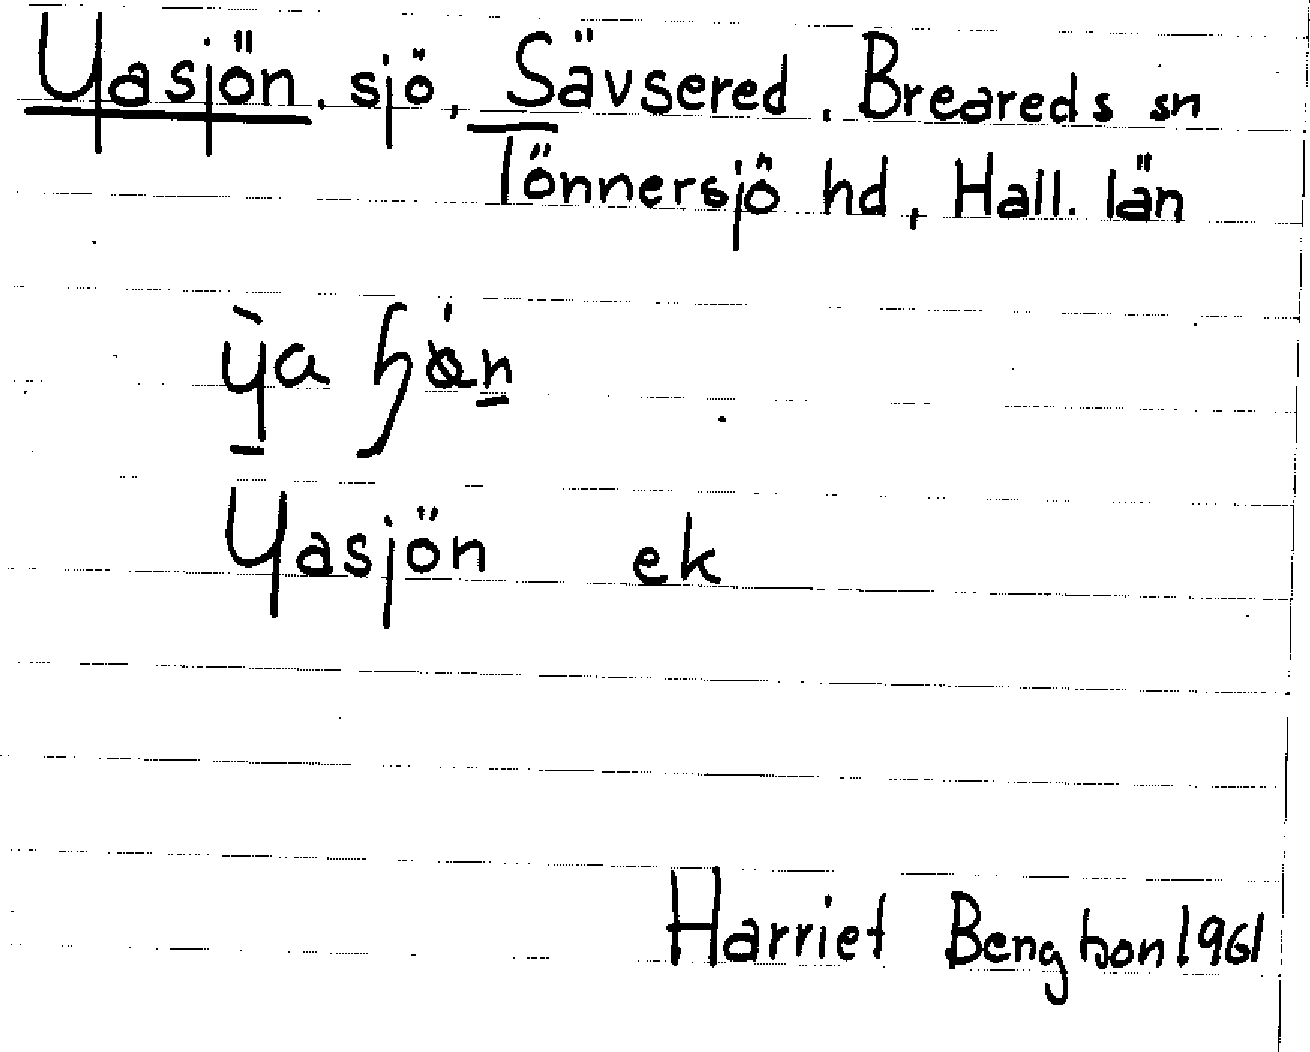 Yasjön. sjö, Sävsered. Breareds sn
Tönnersjö hd, Hall. län
Yasjön ek
Harriet Bengtson 1961